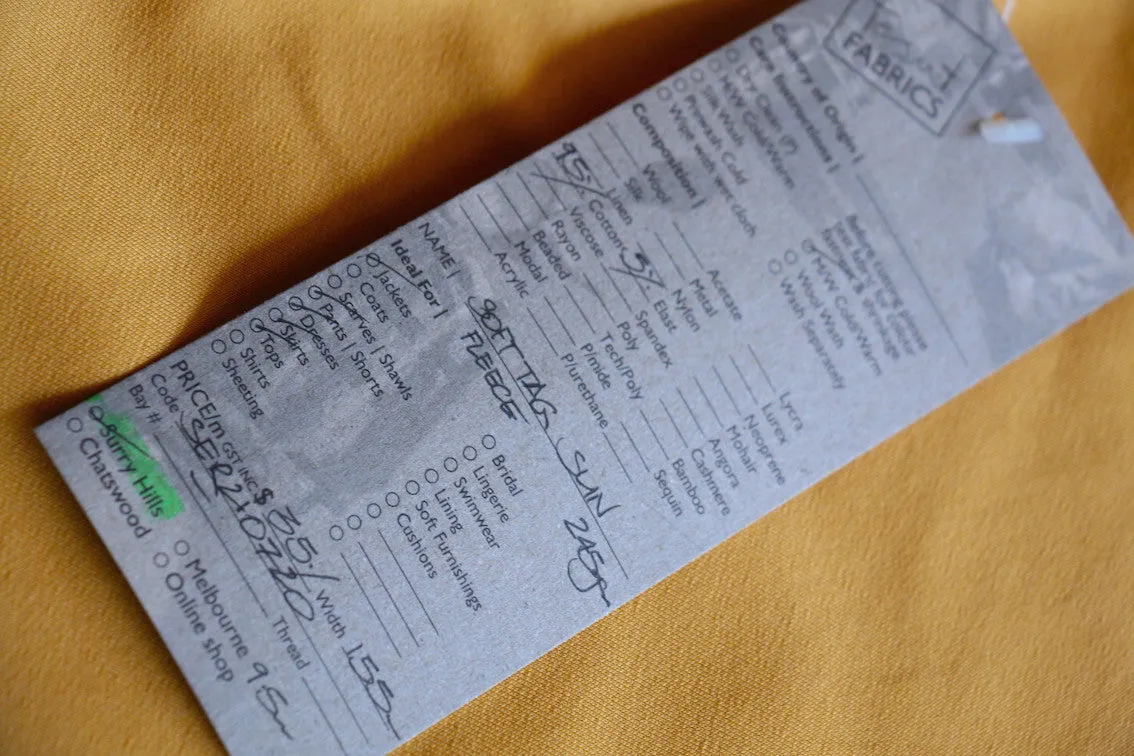 FABRICS
Country of Origin |
Care Instructions |
Dry Clean (P)
H/W Cold/Warm
Silk Wash
Prewash Cold
Wipe with wet cloth
Before cutting please
M/W Cold/Warm
Wool Wash
Wash Separately
Composition |
Wool
Silk
Linen
95% Cotton
Viscose
Rayon
Beaded
Modal
Acrylic
Acetate
Metal
Nylon
5% Elast
Spandex
Poly
Tech/Poly
P/mide
P/urethane
Lycra
Lurex
Neoprene
Mohair
Angora
Cashmere
Bamboo
Sequin
NAME |
FLEECE
245g
Ideal For |
Jackets
Coats
Scarves | Shawls
Pants | Shorts
Dresses
Skirts
Tops
Shirts
Sheeting
Bridal
Lingerie
Swimwear
Lining
Soft Furnishings
Cushions
PRICE/m GST INC $ 35./ Width 155
Code
Bay # Thread
Surry Hills
Chatswood
Melbourne
Online shop